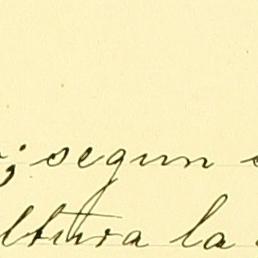 ; segun
ltura la